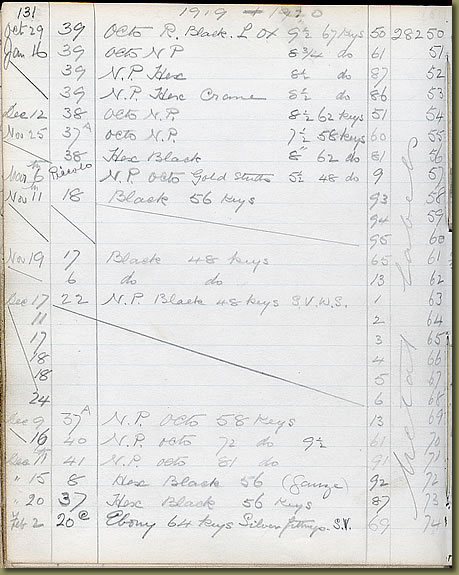 131 1919 1920
Oct 29 39 Octo R. Black. L Ox 9½ 67 keys 50 28250
Jan 16 39 Octo N.P 8¾ do 61 51
39 N.P. Hex 8½ do 87 52
39 N.P. Hex Crane 8½ do 86 53
Dec 12 38 Octo N.P. 8½ 62 keys 51 54
Nov 25 37A Octo N.P. 7½ 58 keys 60 55
38 Hex Black 8" 62 do 81 56
6th Piccolo N.P. Octo Gold Studs 5½ 48 do 9 57
Nov 11th 18 Black 56 keys 93 58
94 59
95 60
Nov 19 17 Black 48 keys 65 61
6 do do 13 62
Dec 17 22 N.P. Black 48 keys S.V.W.S. 1 63
11 2 64
17 3 65
18 4 66
18 5 67
24 6 68
Dec 9 37A N.P. Octo 58 keys 13 69
16 40 N.P. Octo 72 do 9½ 61 70
Dec 41 N.P. Octo 81 do 91 71
" 15 8 Hex Black 56 (Gauze) 92 72
" 20 37 Hex Black 56 keys 87 73
Feb 2 20c Ebony 64 keys Silver fittings. S.V. 69 74
Metal Labels